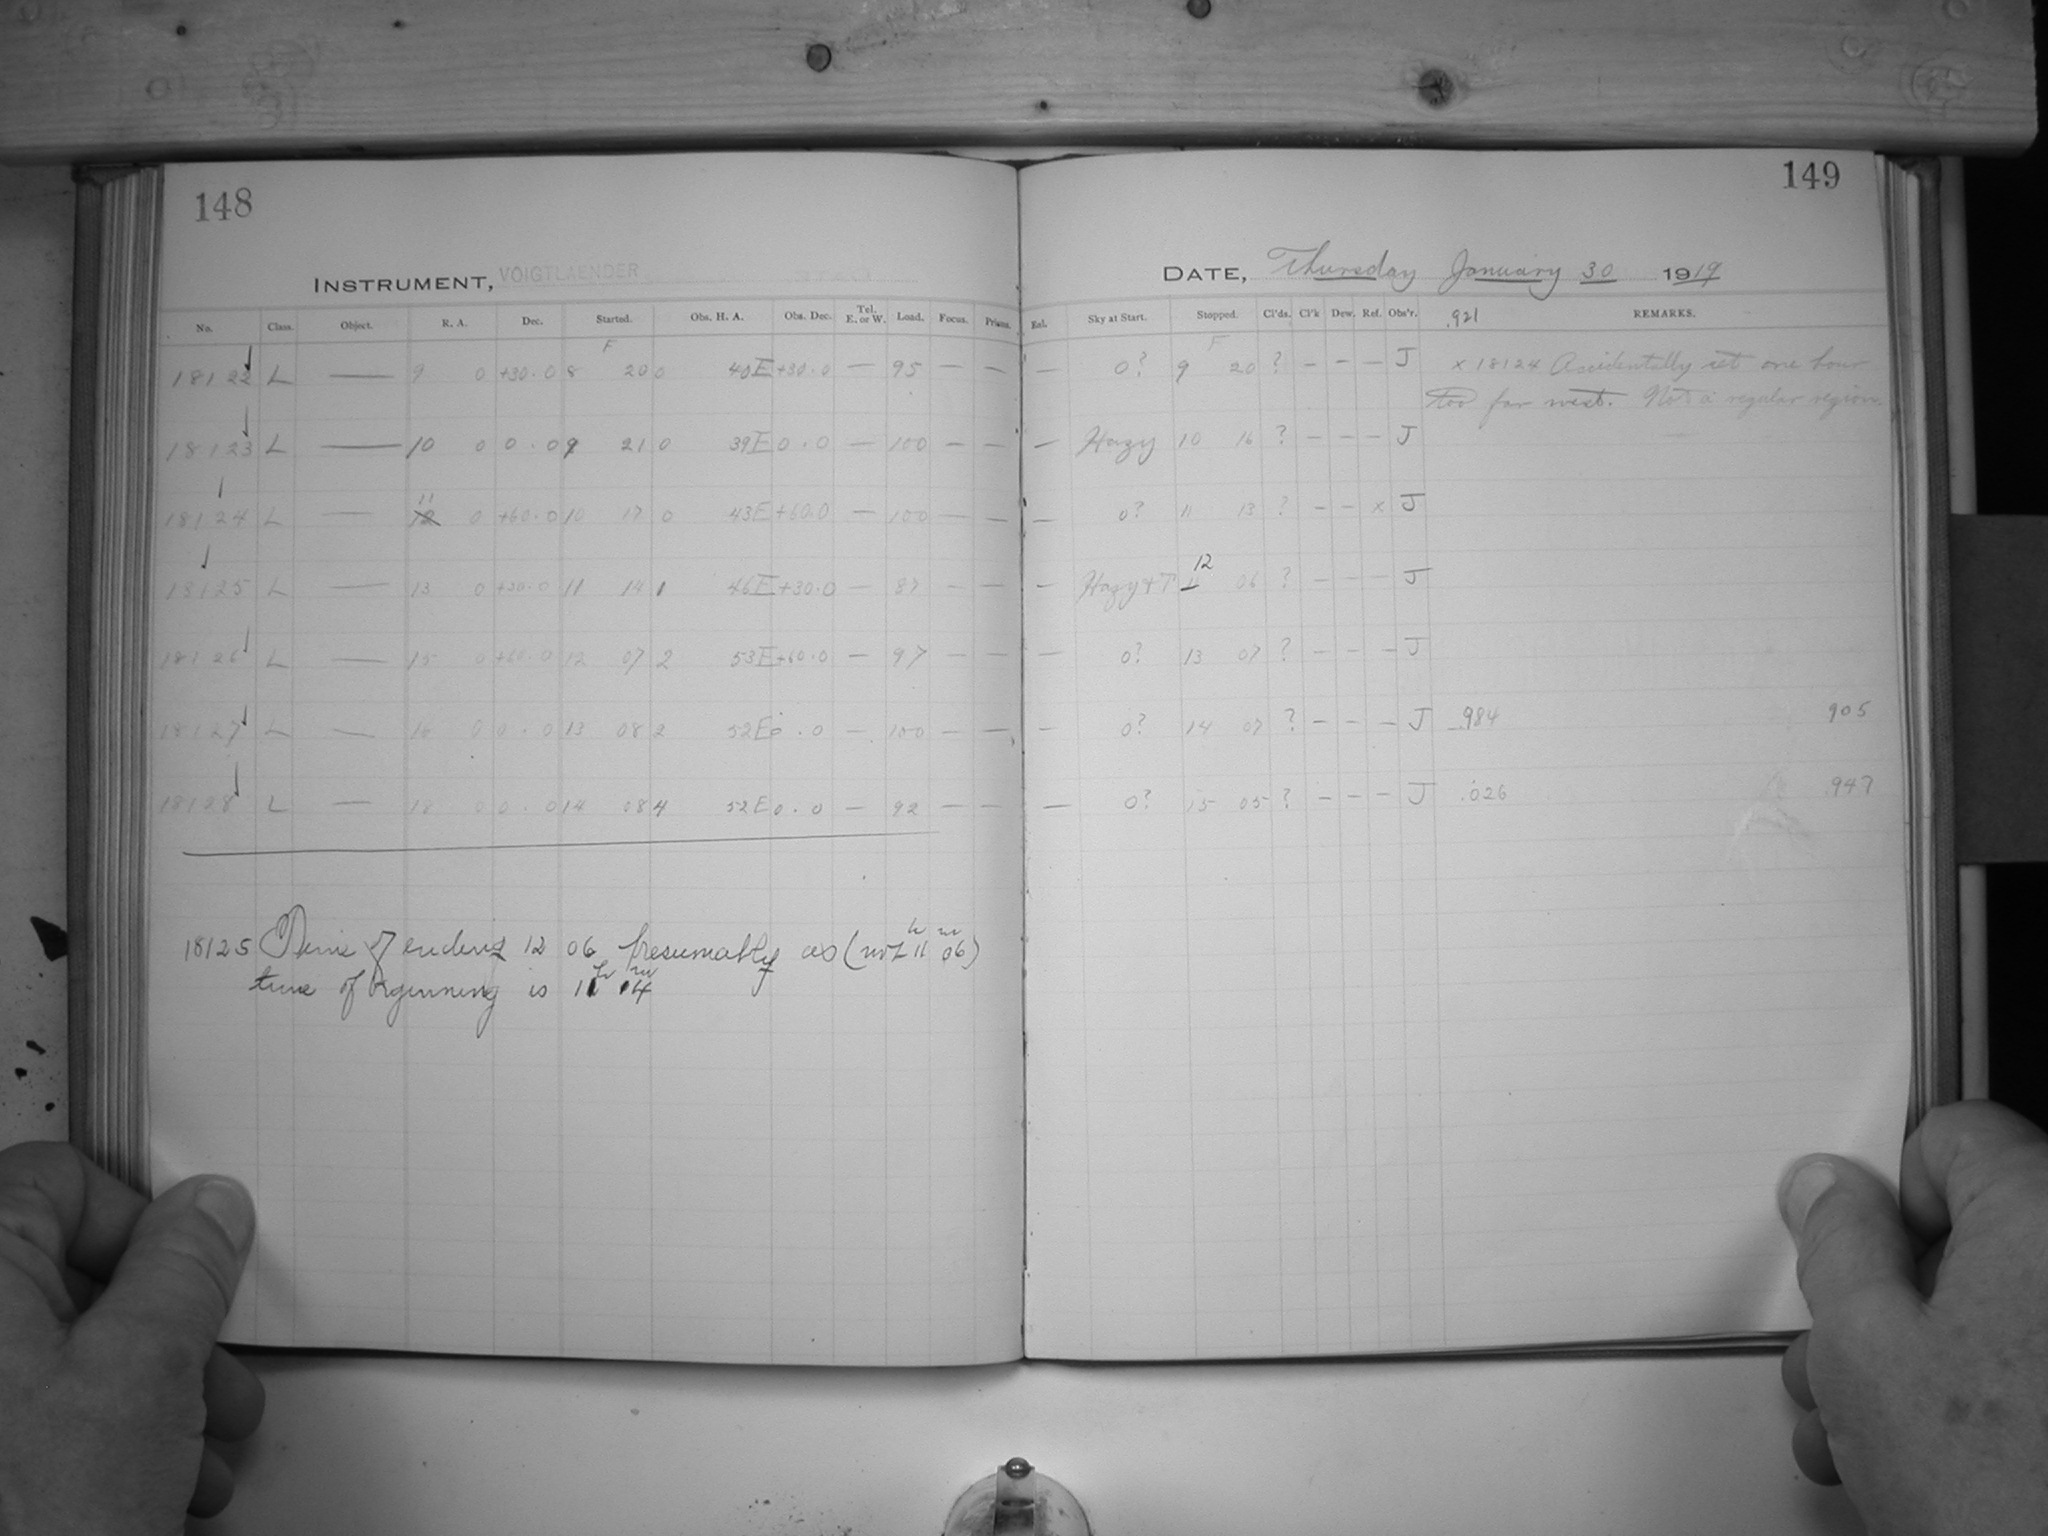 148
149
INSTRUMENT, VOIGTLAENDER
DATE, Thursday January 30 1919
No. Class. Object. R. A. Dec. Started. Obs. H. A. Obs. Dec. Tel. E. or W. Load. Focus. Prisms. Exl. Sky at Start. Stopped. Cl'ds. Cl'k Dew. Ref. Obs'r. .921 REMARKS.
F F
18122 L — 9 0 +30.0 8 20 0 40E +30.0 — 95 — — — 0? 9 20 ? — — — J × 18124 Accidentally set one hour
too far west. Not a regular region.
18123 L — 10 0 0.0 9 21 0 39E 0.0 — 100 — — — Hazy 10 16 ? — — — J
11
18124 L — 12 0 +60.0 10 17 0 43E +60.0 — 100 — — — 0? 11 13 ? — — × J
12
18125 L — 13 0 +30.0 11 14 1 46E +30.0 — 87 — — — Hazy + T 11 06 ? — — — J
18126 L — 15 0 +60.0 12 07 2 53E +60.0 — 97 — — — 0? 13 07 ? — — — J
18127 L — 16 0 0.0 13 08 2 52E 0.0 — 100 — — — 0? 14 07 ? — — — J .984 905
18128 L — 18 0 0.0 14 08 4 52E 0.0 — 92 — — — 0? 15 05 ? — — — J .026 .947
18125 Time of ending 12 06 presumably as (not 11h 06m)
time of beginning is 11h 14m